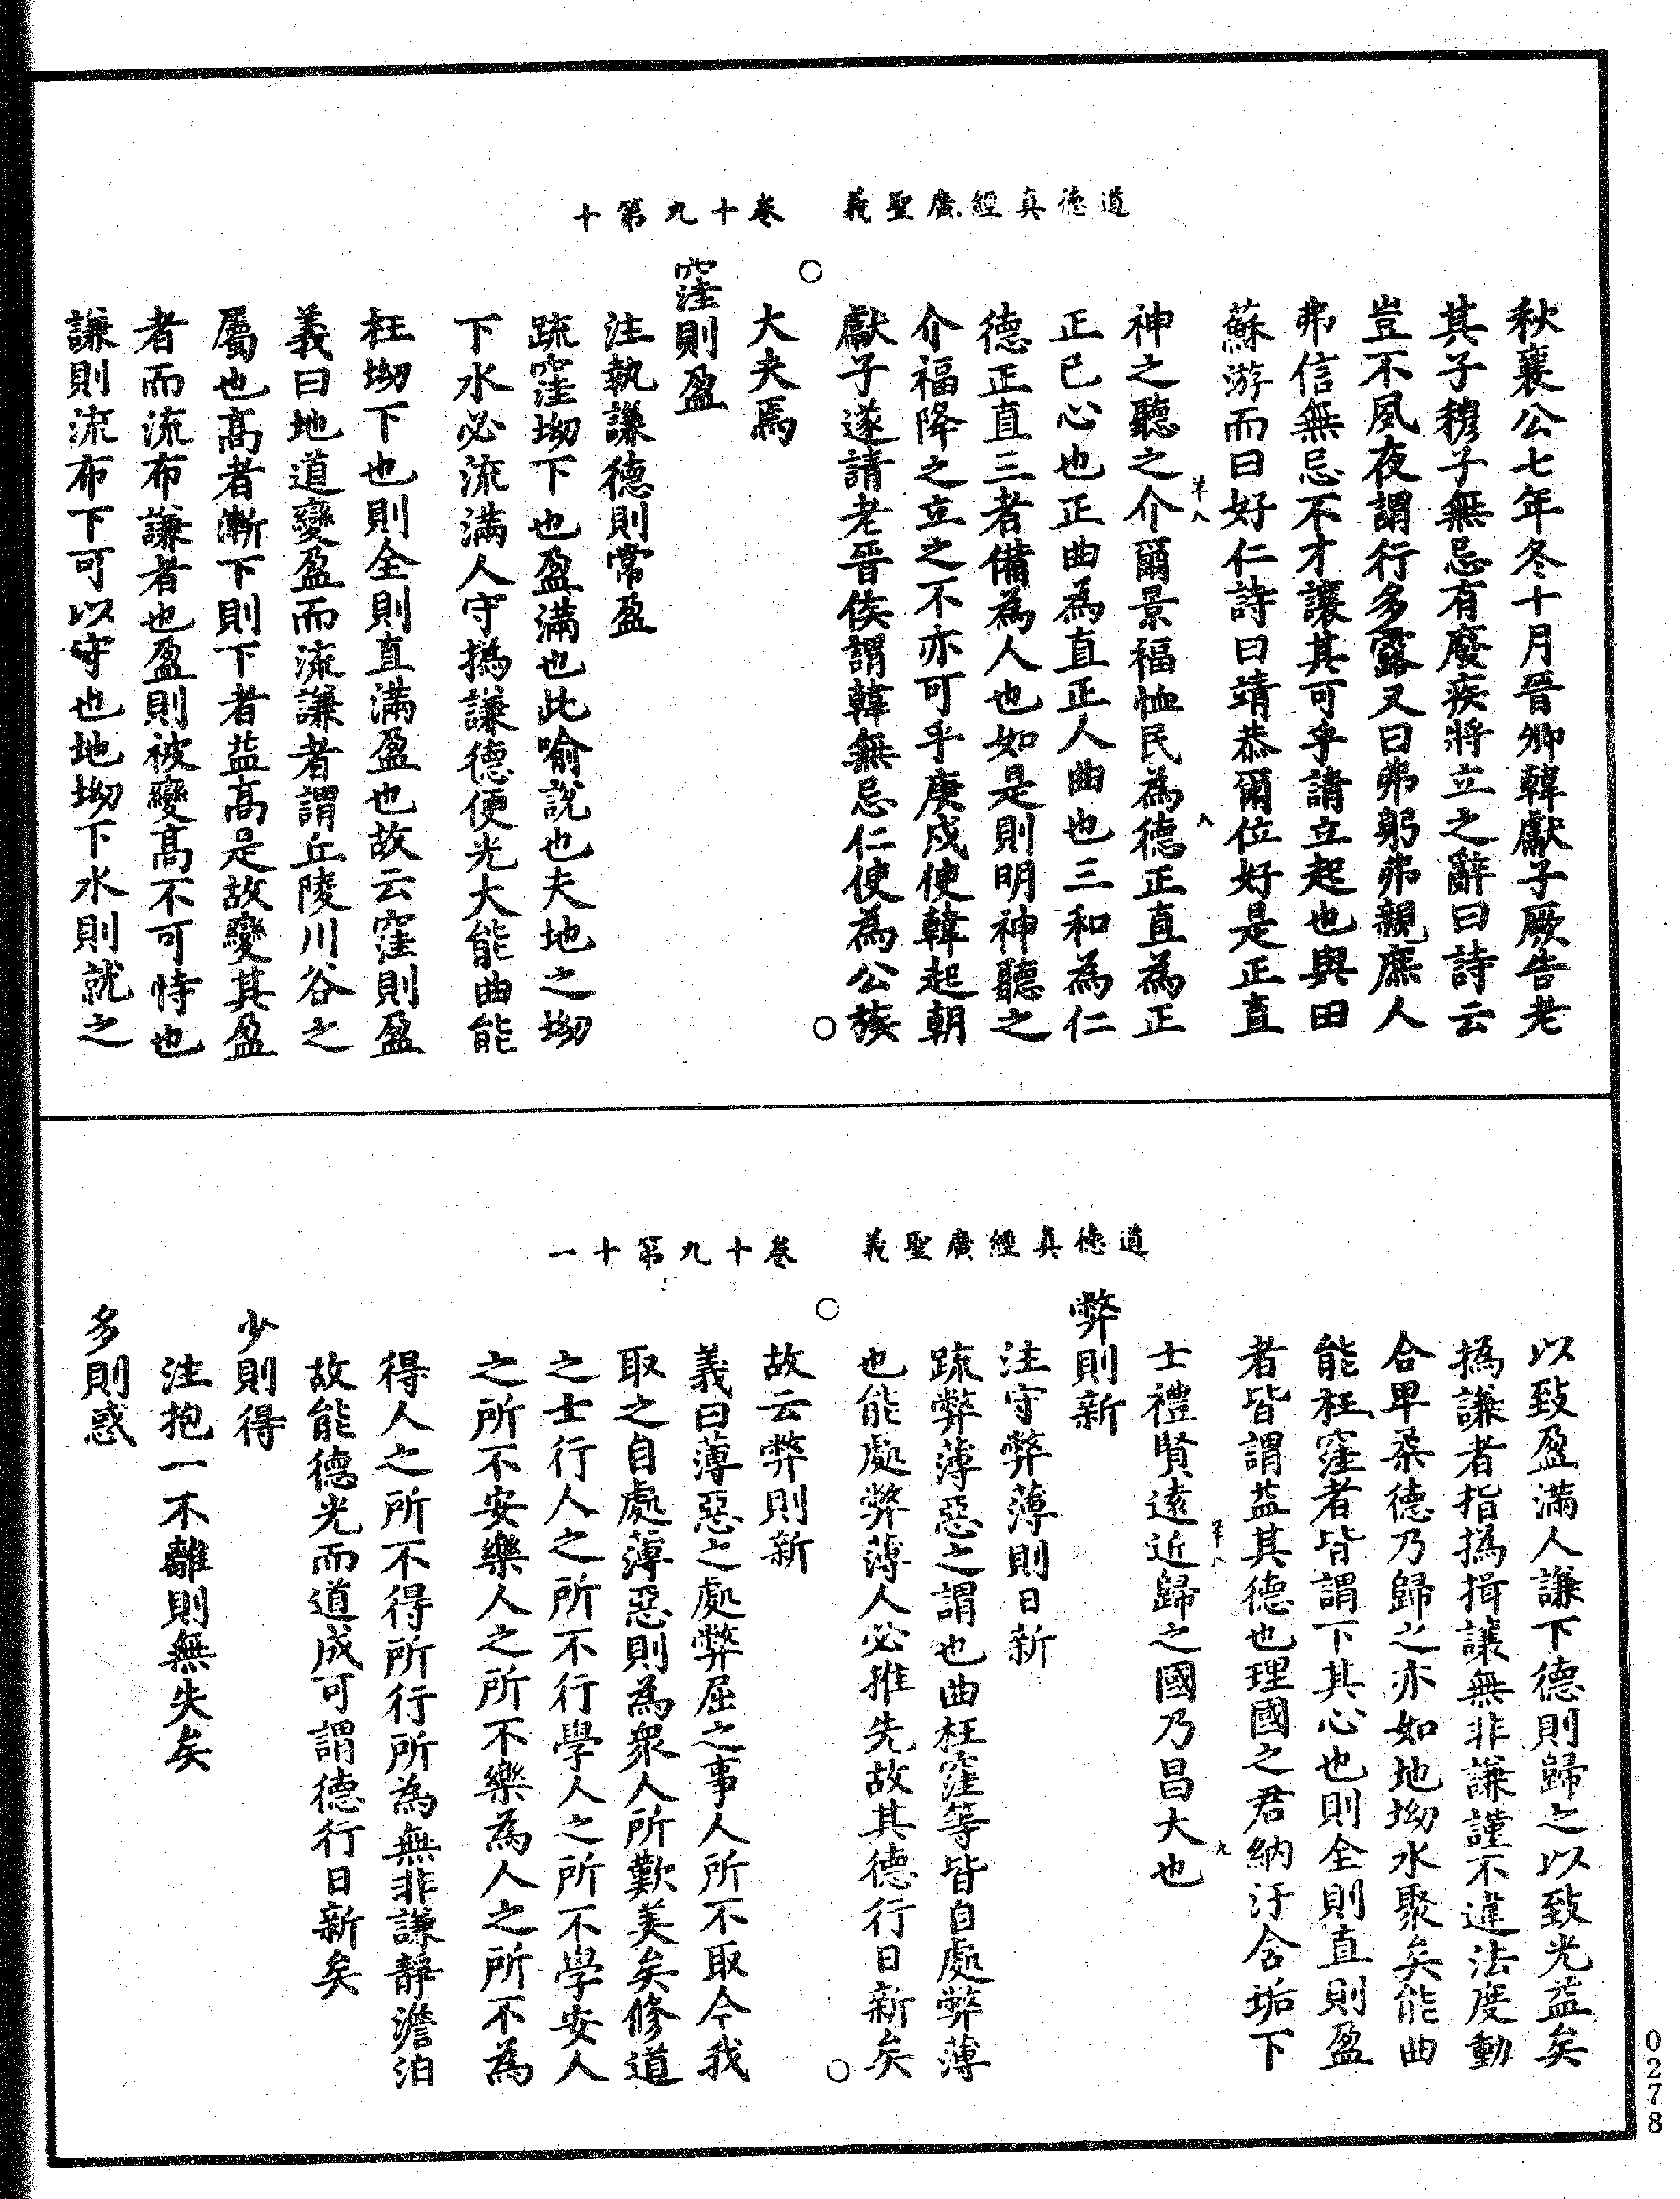 道德真經廣聖義　卷十九第十
秋襄公七年冬十月晉卿韓獻子厥告老
其子穆子無忌有廢疾將立之辭曰詩云
豈不夙夜謂行多露又曰弗躬弗親庶人
弗信無忌不才讓其可乎請立起也與田
蘇游而曰好仁詩曰靖恭爾位好是正直
神之聽之介爾景福恤民為德正直為正
正已心也正曲為直正人曲也三和為仁
德正直三者備為人也如是則明神聽之
介福降之立之不亦可乎庚戍使韓起朝
獻子遂請老晉侯謂韓無忌仁使為公族
大夫焉
窪則盈
注執謙德則常盈
疏窪坳下也盈滿也此喻說也夫地之坳
下水必流滿人守撝謙德便光大能曲能
枉坳下也則全則直滿盈也故云窪則盈
義曰地道變盈而流謙者謂丘陵川谷之
屬也高者漸下則下者益高是故變其盈
者而流布謙者也盈則被變高不可恃也
謙則流布下可以守也地坳下水則就之
道德真經廣聖義　卷十九第十一
以致盈滿人謙下德則歸之以致光益矣
撝謙者指撝揖讓無非謙謹不違法度動
合卑柔德乃歸之亦如地坳水聚矣能曲
能枉窪者皆謂下其心也則全則直則盈
者皆謂益其德也理國之君納汙含垢下
士禮賢遠近歸之國乃昌大也
弊則新
注守弊薄則日新
疏弊薄惡之謂也曲枉窪等皆自處弊薄
也能處弊薄人必推先故其德行日新矣
故云弊則新
義曰薄惡之處弊屈之事人所不取今我
取之自處薄惡則為衆人所歎美矣修道
之士行人之所不行學人之所不學安人
之所不安樂人之所不樂為人之所不為
得人之所不得所行所為無非謙靜澹泊
故能德光而道成可謂德行日新矣
少則得
注抱一不離則無失矣
多則惑
0278